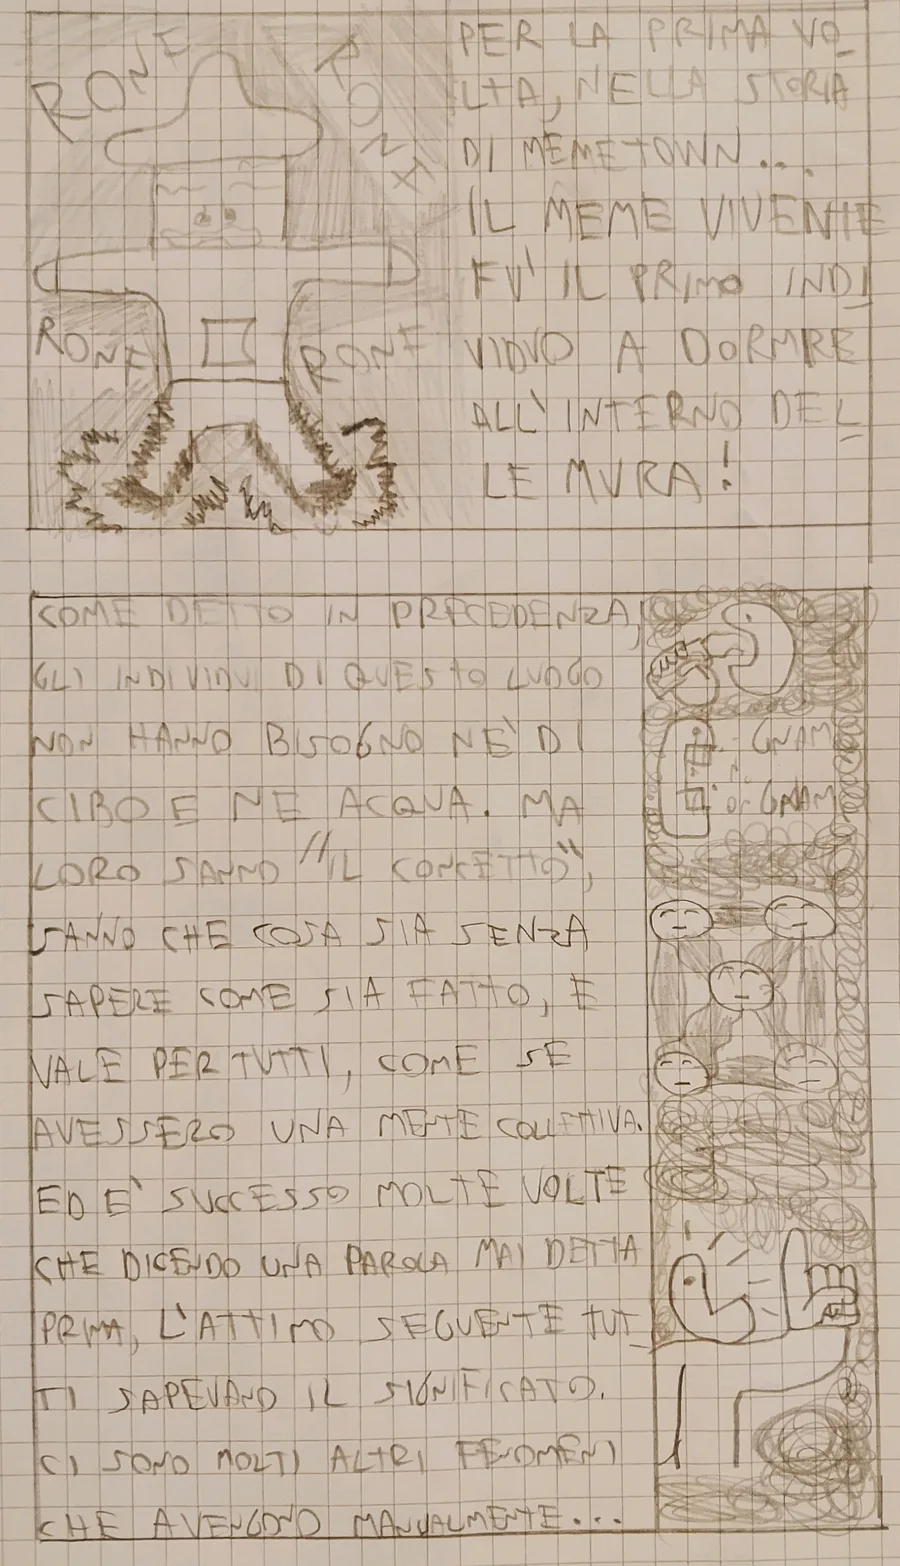 RONF
RONF
RONF
RONF
PER LA PRIMA VO
LTA, NELLA STORIA
DI MEMETOWN...
IL MEME VIVENTE
FU' IL PRIMO INDI
VIDUO A DORMIRE
ALL'INTERNO DEL
LE MURA!
COME DETTO IN PRECEDENZA,
GLI INDIVIDUI DI QUESTO LUOGO
NON HANNO BISOGNO NE' DI
CIBO E NE ACQUA. MA
LORO SANNO "IL CONCETTO",
SANNO CHE COSA SIA SENZA
SAPERE COME SIA FATTO, E
VALE PER TUTTI, COME SE
AVESSERO UNA MENTE COLLETTIVA.
ED E' SUCCESSO MOLTE VOLTE
CHE DICENDO UNA PAROLA MAI DETTA
PRIMA, L'ATTIMO SEGUENTE TUT
TI SAPEVANO IL SIGNIFICATO.
CI SONO MOLTI ALTRI FENOMENI
CHE AVENGONO MANUALMENTE...
GNAM
GNAM